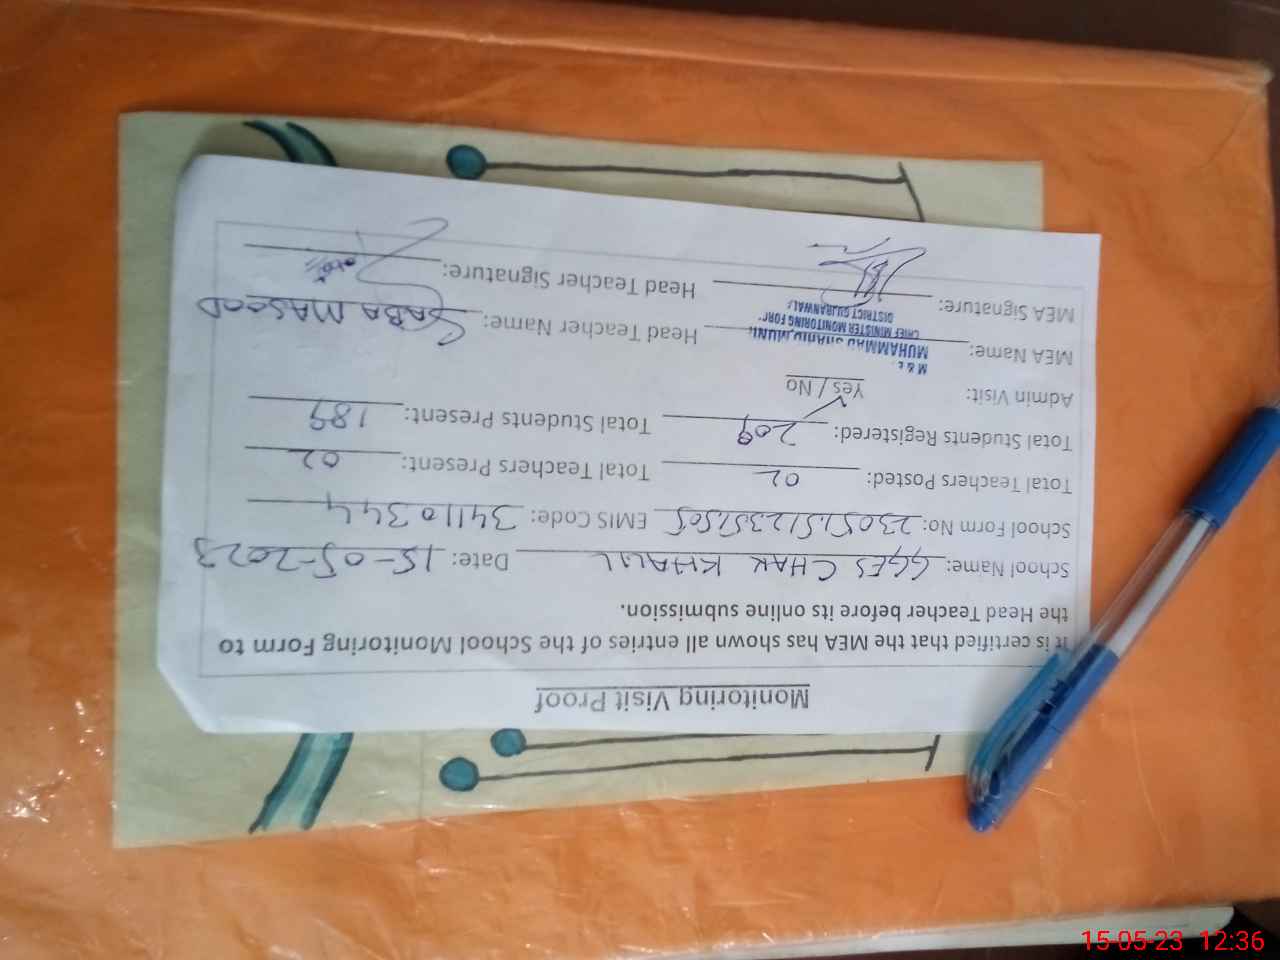 Monitoring Visit Proof
It is certified that the MEA has shown all entries of the School Monitoring Form to
the Head Teacher before its online submission.
School Name: GGES CHAK KHALIL Date: 15-05-2023
School Form No: EMIS Code: 34110344
Total Teachers Posted: 02 Total Teachers Present: 02
Total Students Registered: 209 Total Students Present: 189
Admin Visit: Yes / No
MEA Name: MUHAMMAD SHAHID MUNI Head Teacher Name: SABA MASOOD
CHIEF MINISTER MONITORING FOR
DISTRICT GUJRANWAL
MEA Signature: Head Teacher Signature:
15-05-23 12:36